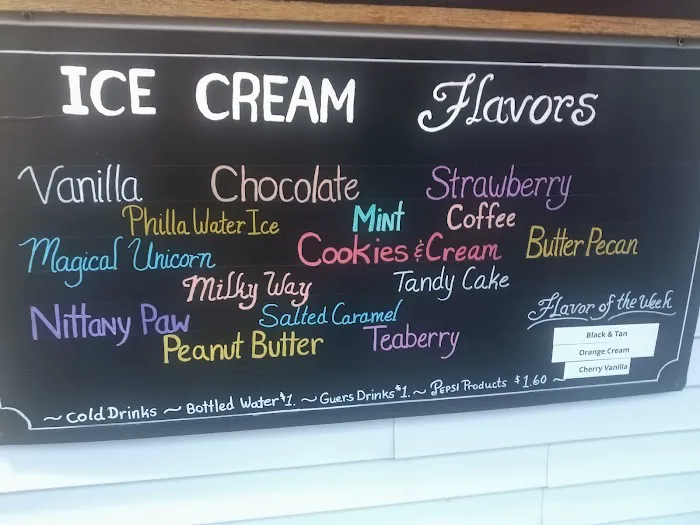 ICE CREAM Flavors
Vanilla Chocolate Strawberry
Philla Water Ice Mint Coffee
Magical Unicorn Cookies & Cream Butter Pecan
Milky Way Tandy Cake
Nittany Paw Salted Caramel
Peanut Butter Teaberry
Flavor of the Week
Black & Tan
Orange Cream
Cherry Vanilla
~ Cold Drinks ~ Bottled Water $1. ~ Guers Drinks $1. ~ Pepsi Products $1.60 ~